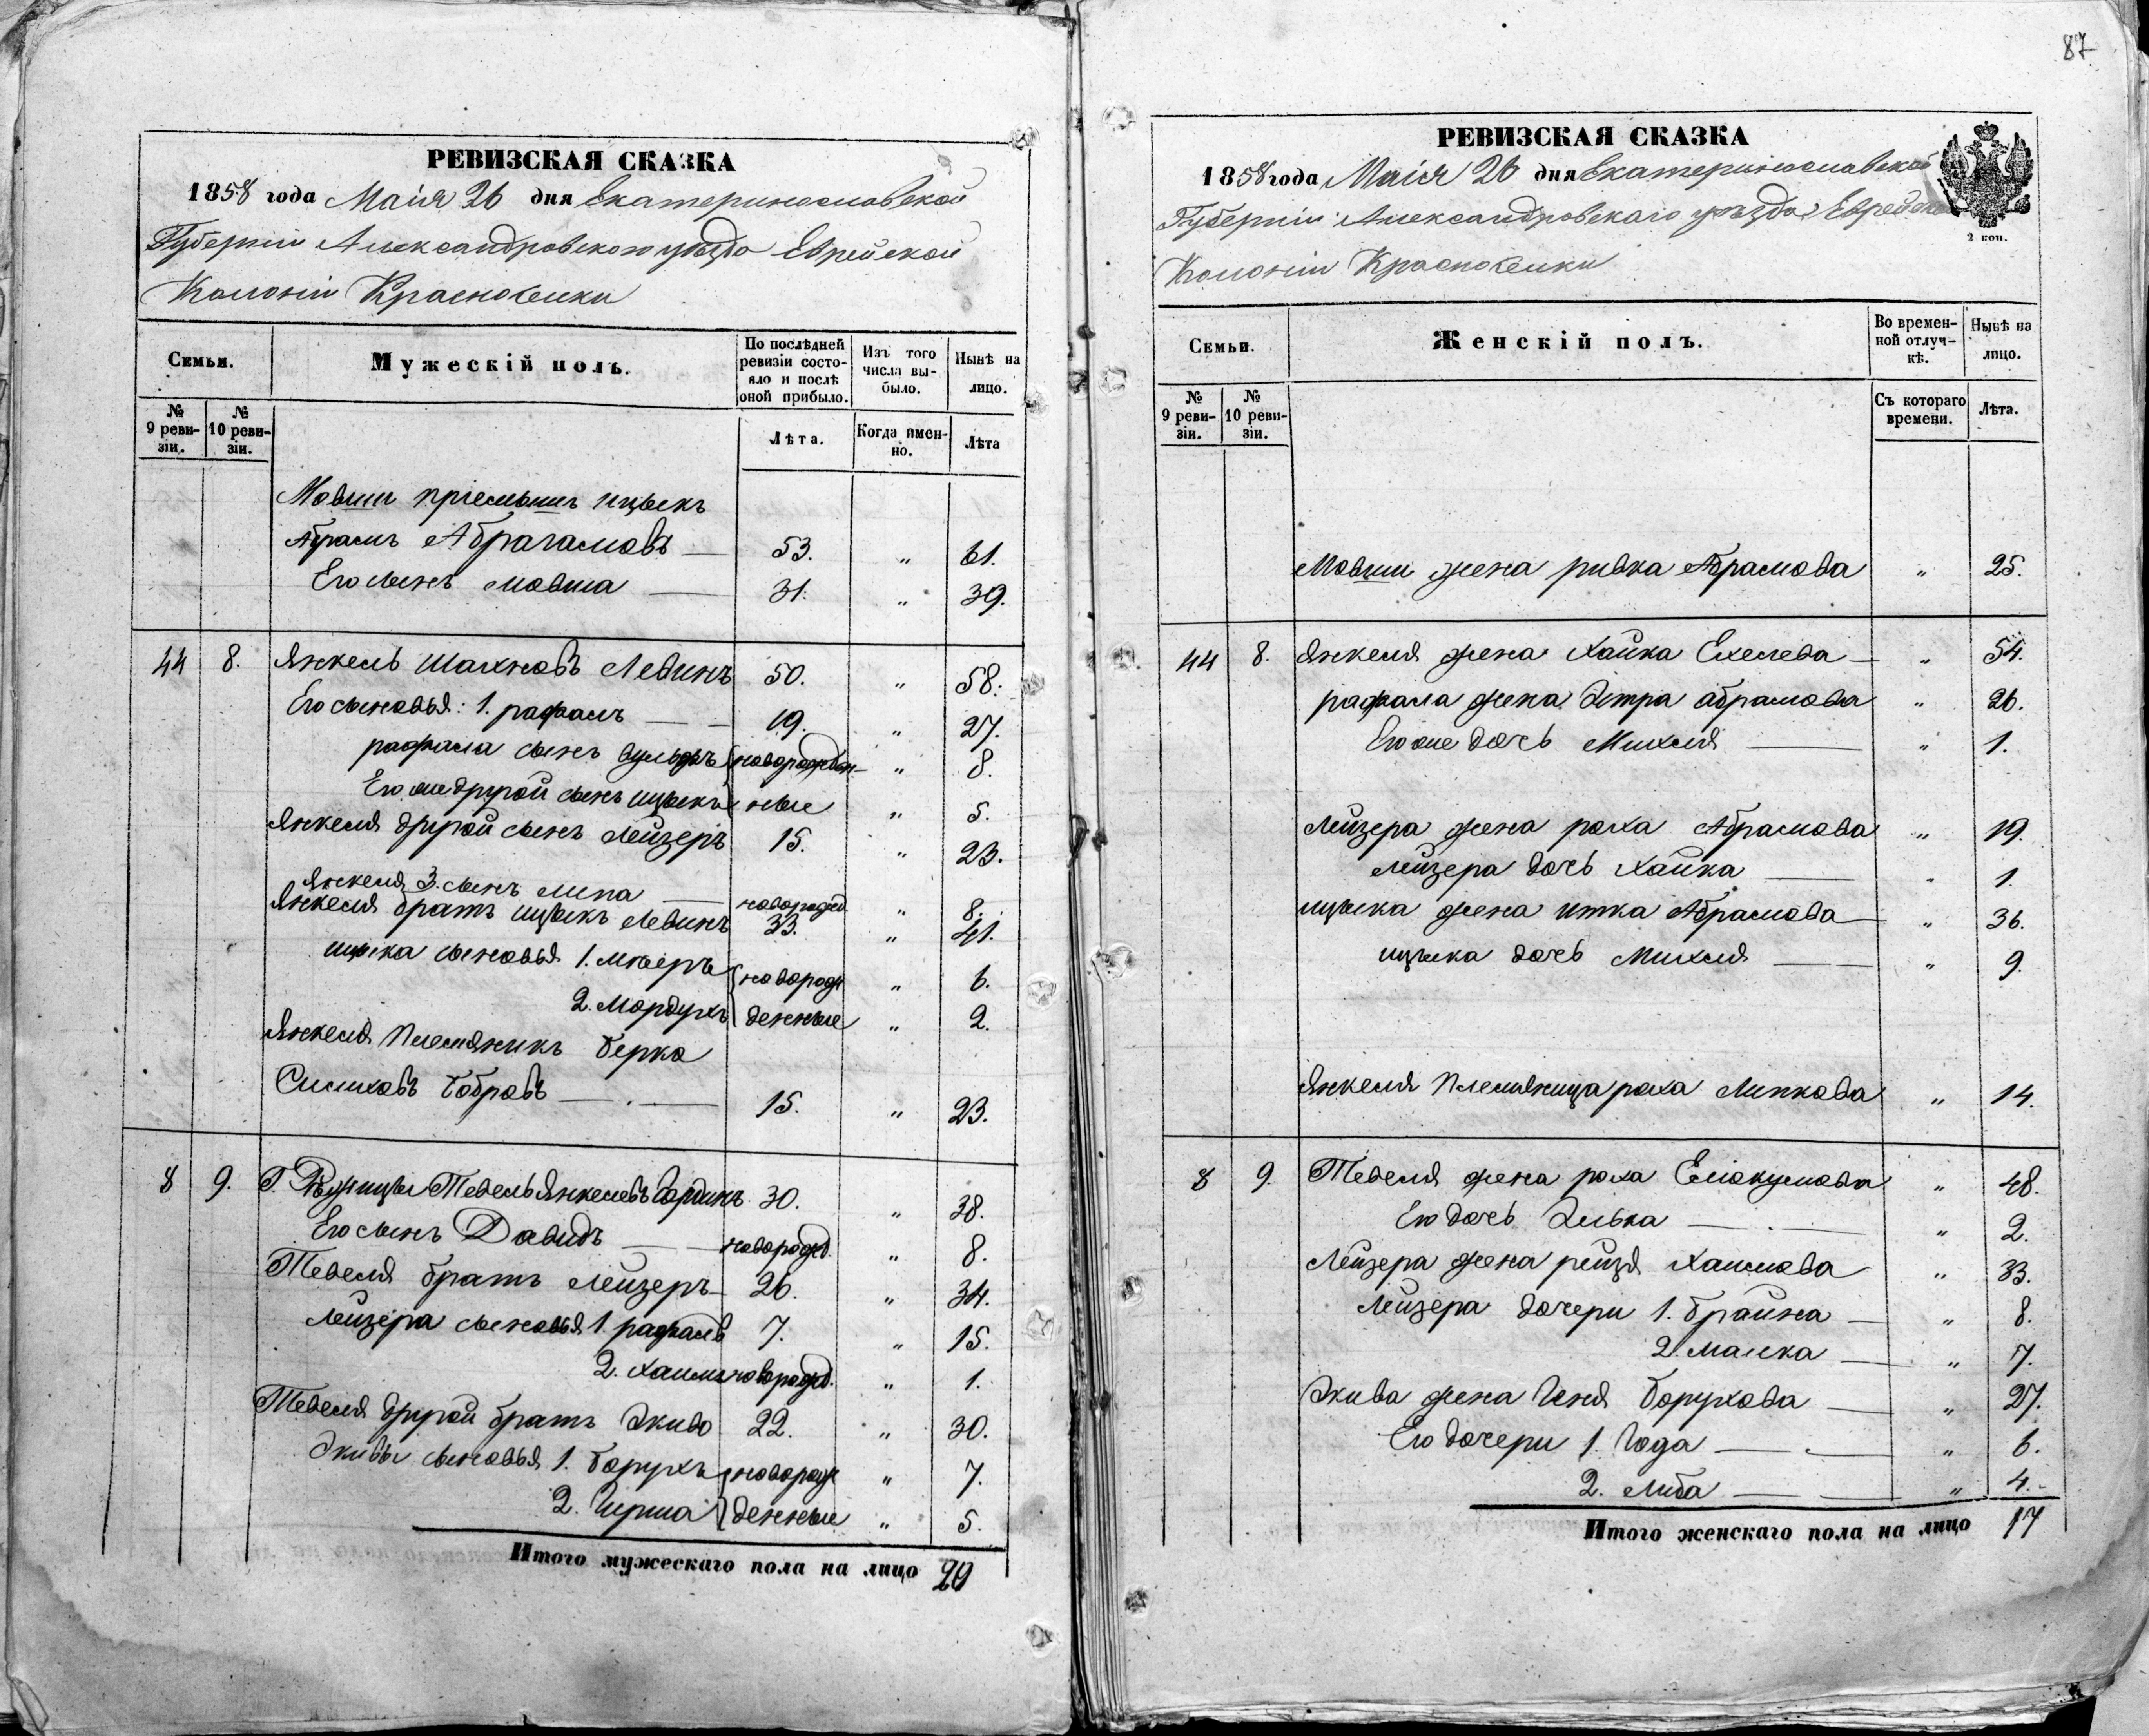 РЕВИЗСКАЯ СКАЗКА
1858 года Маія 26 дня Екатеринославской
Губерніи Александровского уѣзда Еврейской
Колоніи Красноселки
Семьи.
Мужескій полъ.
По послѣдней ревизіи состояло и послѣ оной прибыло.
Изъ того числа выбыло.
Нынѣ на лицо.
№ 9 ревизіи.
№ 10 ревизіи.
Лѣта.
Когда именно.
Лѣта
Мовши пріемышъ ицыкъ
Абрамъ Абрагамовъ — 53. „ 61.
Его сынъ мовша — 31. „ 39.
44 8. Янкель Шахновъ Левинъ 50. „ 58.
Его сыновья: 1. рафалъ — 19. „ 27.
рафала сынъ вульфъ новорожден- „ 8.
Его же другой сынъ ицыкъ ные „ 5.
Янкеля другой сынъ Лейзеръ 15. „ 23.
Янкеля 3. сынъ липа — новорожд. „ 8.
Янкеля братъ ицыкъ Левинъ 33. „ 41.
ицыка сыновья 1. мееръ новорож „ 6.
2. Мордухъ денные „ 2.
Янкеля Племяникъ берка
Бобровъ — 15. „ 23.
8 9. Г. Тевель Янкелевъ Гординъ 30. „ 38.
Его сынъ Давидъ — новорожд. „ 8.
Тевеля братъ Лейзеръ 26. „ 34.
Лейзера сыновья 1. рафалъ 7. „ 15.
2. хаимъ новорожд. „ 1.
Тевеля другой братъ Экива 22. „ 30.
Экивы сыновья 1. борухъ новорож „ 7.
2. Гирша денные „ 5.
Итого мужескаго пола на лицо 20
87
РЕВИЗСКАЯ СКАЗКА
1858 года Маія 26 дня Екатеринославской
Губерніи Александровскаго уѣзда Еврейской
2 коп.
Колоніи Красноселки
Семьи.
Женскій полъ.
Во временной отлучкѣ.
Нынѣ на лицо.
№ 9 ревизіи.
№ 10 ревизіи.
Съ котораго времени.
Лѣта.
Мовши жена ривка Абрамова „ 25.
44 8. Янкеля жена Хайка Ехелева — „ 54.
рафала жена Эстра абрамова „ 26.
Его же дочь Михля — „ 1.
Лейзера жена роха Абрамова „ 19.
Лейзера дочь Хайка — „ 1.
ицыка жена итка Абрамова — „ 36.
ицыка дочь Михля — „ 9.
Янкеля Племяница роха Липкова „ 14.
8 9. Тевеля жена роха Еліокумова „ 48.
Его дочь Элька — „ 2.
Лейзера жена рейзя Хаимова „ 33.
Лейзера дочери 1. брайна — „ 8.
2. малка — „ 7.
Экива жена Геня борухова — „ 27.
Его дочери 1. Года — „ 6.
2. Либа — „ 4.
Итого женскаго пола на лицо 17